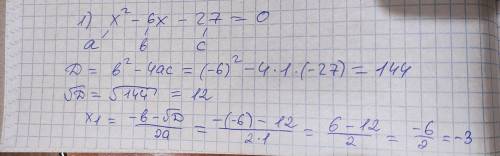 1) x² - 6x - 27 = 0
a в c
D = в² - 4ac = (-6)² - 4·1·(-27) = 144
√D = √144 = 12
x₁ = (-в-√D)/(2a) = (-(-6)-12)/(2·1) = (6-12)/2 = (-6)/2 = -3